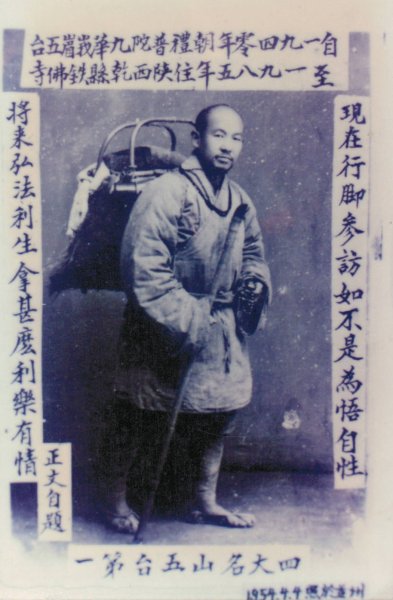 自一九四零年朝禮普陀九華峩嵋五台
至一九八五年住陝西乾縣鉄佛寺
現在行脚參訪如不是為悟自性
将来弘法利生拿甚麽利樂有情
正文自題
四大名山五台第一
1954.4.4 照於州